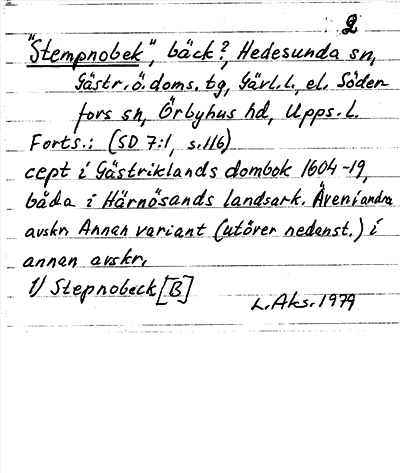 2
"Stempnobek", bäck?, Hedesunda sn,
Gästr. ö. doms. tg, Gävl. l., el. Söder-
fors sn, Örbyhus hd, Upps. l.
Forts.: (SD 7:1, s. 116)
cept i Gästriklands dombok 1604-19,
båda i Härnösands landsark. Även i andra
avskr. Annan variant (utöver nedanst.) i
annan avskr.
1) Stepnobeck [B]
L. Aks. 1979